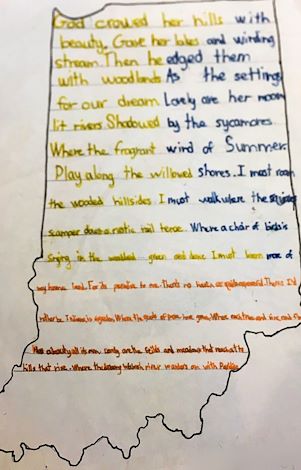 God crowed her hills with
beauty. Gave her lakes and winding
stream. Then he edged them
with woodlands As the settings
for our dream Lovely are her moon
lit rivers Shadowed by the sycamores
Where the fragrant wind of Summer
Play along the willowed shores. I must roam
the wooded hillsides. I must walk where the
scamper down a rustic rail fence. Where a choir of birds is
Singing in the woodland green and I must learn more of
my home land. For its paradise to me. There's no haven
rather be. Indiana is a garden. Where the seeds of peace have grown. Where each tree and vine and
Has a beauty all its own. Lovely are the fields and meadows that reach out to
hills that rise. Where the Wabash river wanders on with